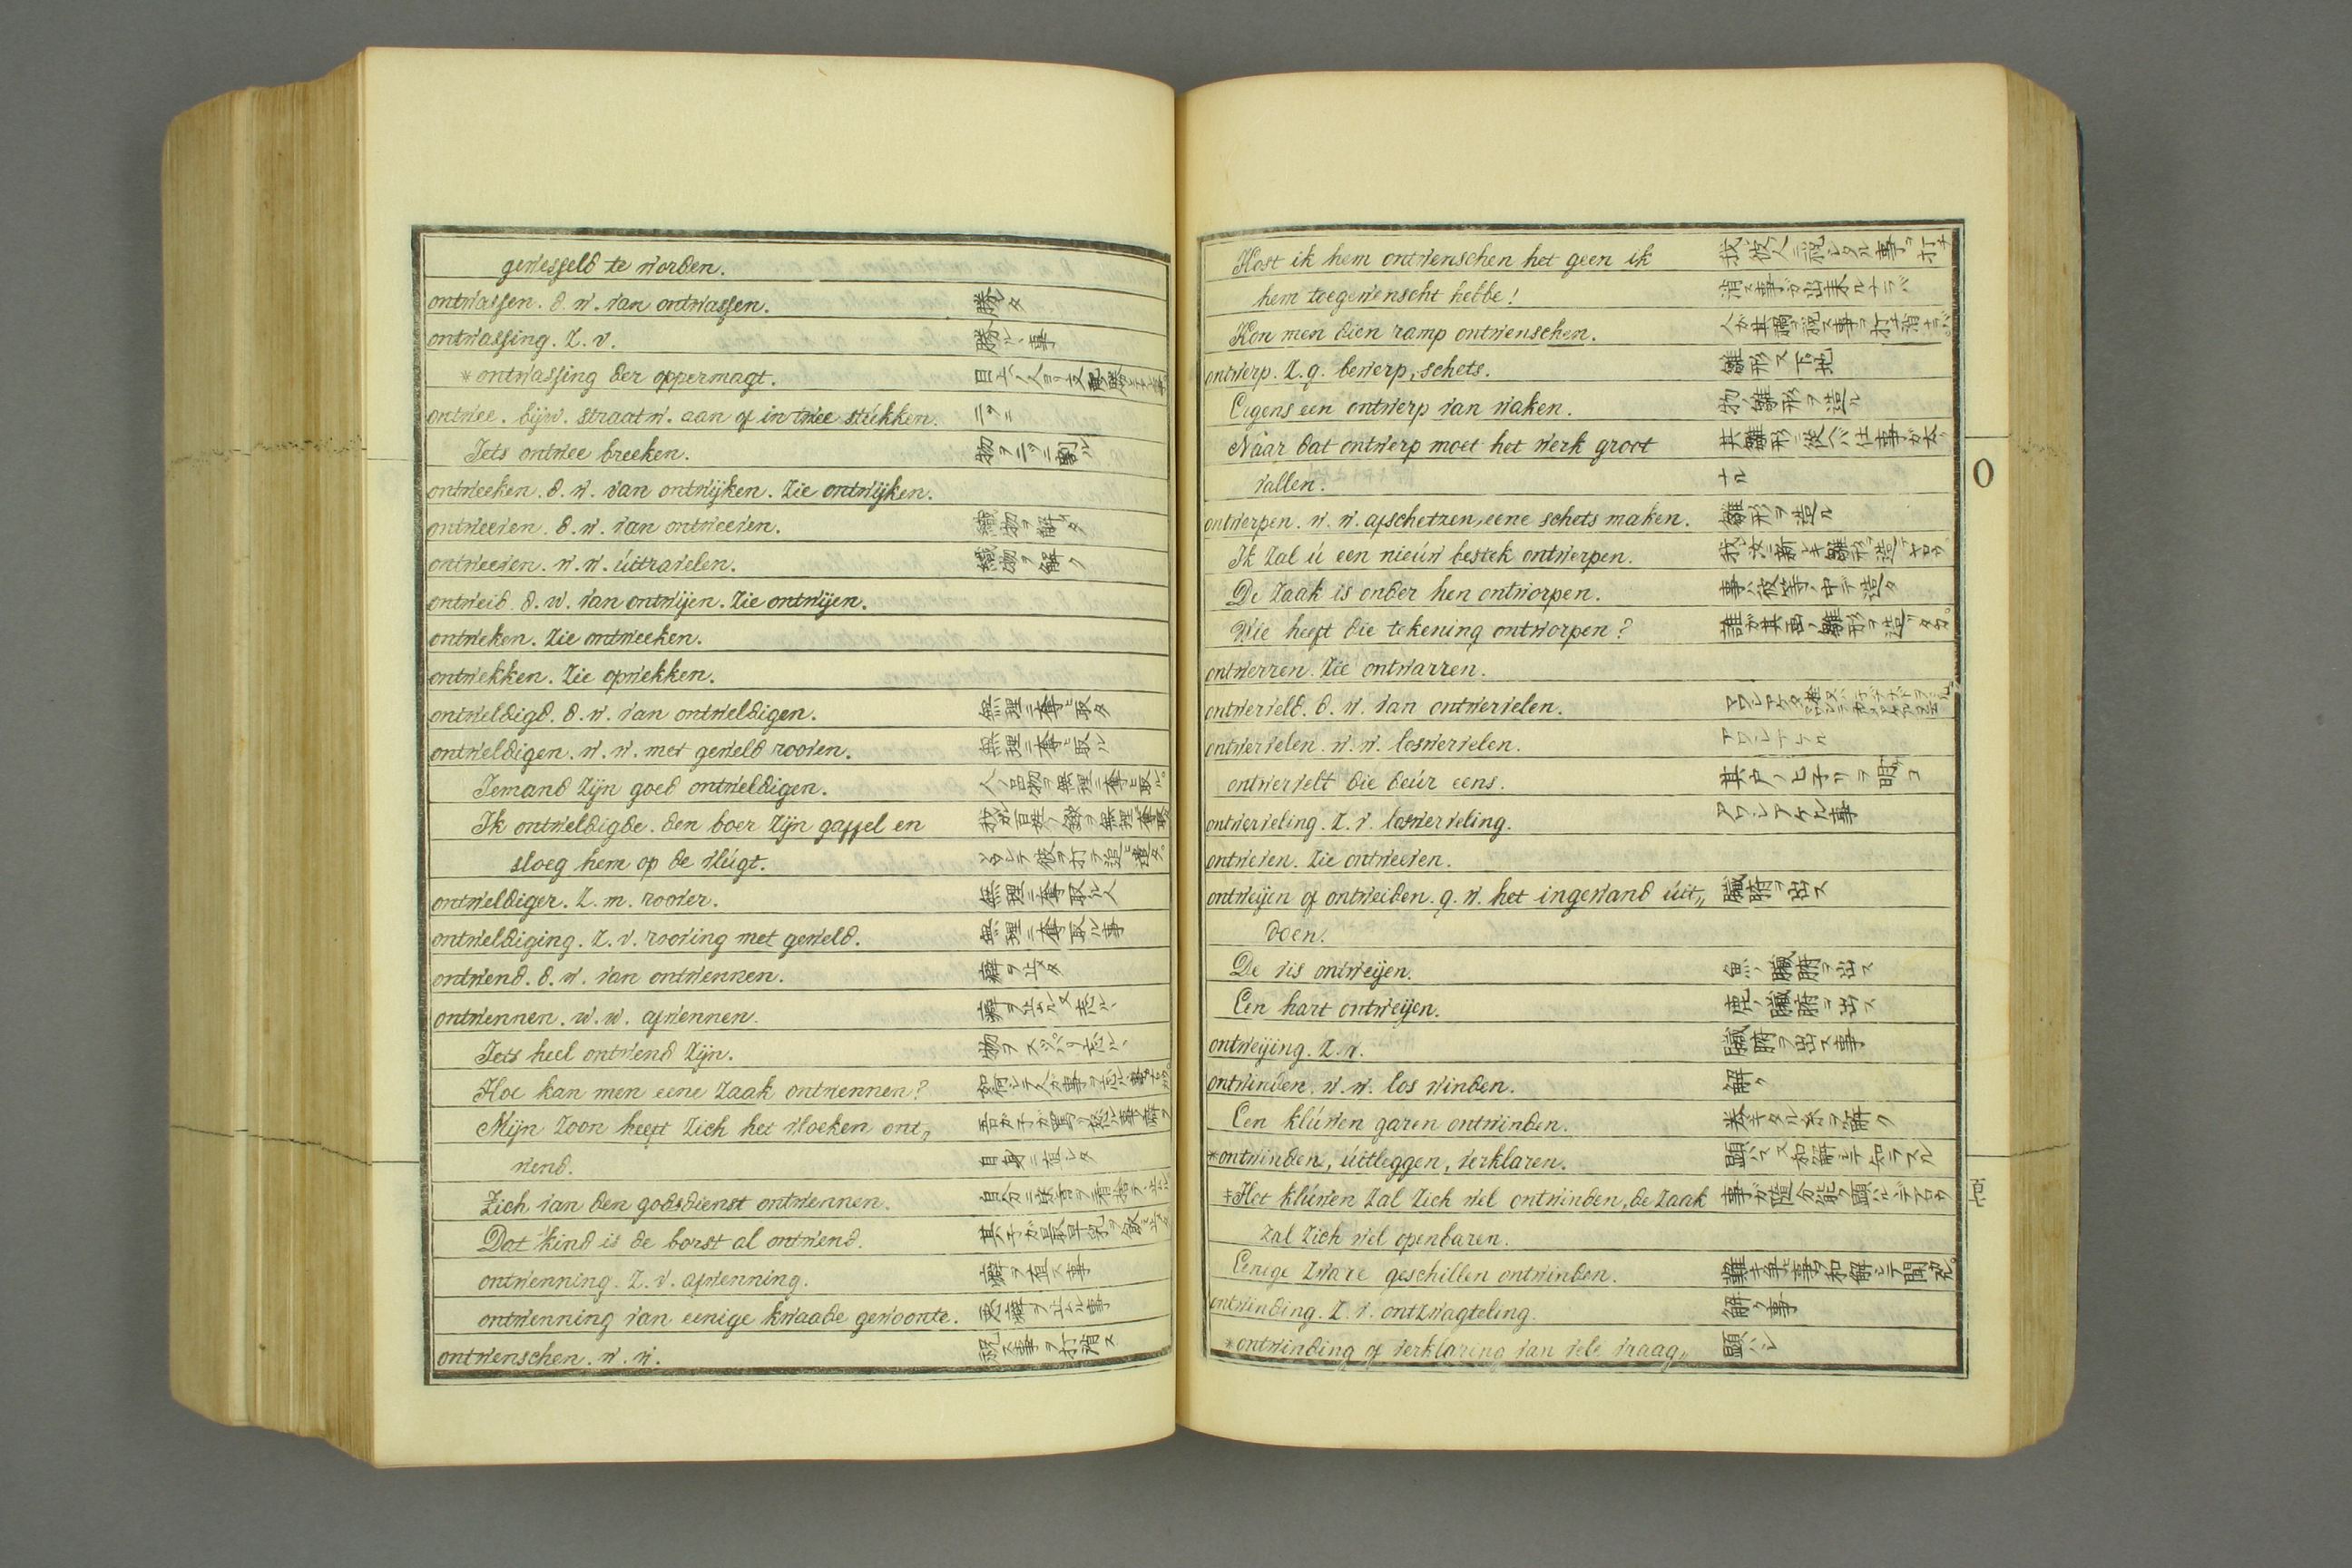 gewesseld te worden.
ontwassen. d. w. van ontwassen. 勝レタ
ontwassing. Z. v. 勝ル事
*ontwassing der oppermagt. 目上ノ人ヨリ
ontwee. bijw. straatw. aan of in twee stúkken. 二ツニ
Iets ontwee breeken. 物ヲ二ツニ割ル
ontweeken. d. w. van ontwijken. Zie ontwijken.
ontweeven. d. w. van ontweeven. 織物ヲ解イタ
ontweeven. w. w. úitravelen. 織物ヲ解ク
ontweid. d. w. van ontwijen. Zie ontwijen.
ontweken. Zie ontweeken.
ontwekken. Zie opwekken.
ontweldigd. d. w. van ontweldigen. 無理ニ奪ヒ取タ
ontweldigen. w. w. met geweld rooven. 無理ニ奪ヒ取ル
Iemand Zijn goed ontweldigen. 人ノ品物ヲ無理ニ奪ヒ取ル。
Ik ontweldigde. den boer Zijn gaffel en
sloeg hem op de vlúgt.
ontweldiger. Z. m. roover. 無理ニ奪取ル人
ontweldiging. Z. v. rooving met geweld. 無理ニ奪取ル事
ontwend. d. w. van ontwennen. 癖ヲ止タ
ontwennen. w. w. afwennen. 癖ヲ止ル
Iets heel ontwend Zijn.
Hoe kan men eene Zaak ontwennen?
Mijn Zoon heeft Zich het vloeken ont„
wend. 自身ニ直シタ
Zich van den godsdienst ontwennen.
Dat kind is de borst al ontwend.
ontwenning. Z. v. afwenning. 癖ヲ直ス事
ontwenning van eenige kwaade gewoonte. 悪癖ヲ止ル事
ontwenschen. w. w. 祝ス事ヲ打消ス
Kost ik hem ontwenschen het geen ik 我彼人ニ祝シタル事ヲ打チ
hem toegewenscht hebbe! 消ス事ガ出来ルナラバ
Kon men dien ramp ontwenschen.
ontwerp. Z. g. bewerp, schets. 雛形又下地
Eigens een ontwerp van waken. 物ノ雛形ヲ造ル
Náar dat ontwerp moet het werk groot 其雛形ニ従ヘバ仕事ガ大ク
vallen. ナル
ontwerpen. w. w. afschetzen, eene schets maken. 雛形ヲ造ル
Ik Zal ú een nieúw bestek ontwerpen.
De Zaak is onder hen ontworpen. 事ハ彼等ノ中デ造タ
Wie heeft die tekening ontworpen? 誰ガ其画ノ雛形ヲ造ツタカ。
ontwerren. Zie ontwarren.
ontwerveld. d. w. van ontwervelen.
ontwervelen. w. w. loswervelen.
ontwervelt die deúr eens. 其戸ノヒ子リヲ明ケヨ
ontwerveling. Z. v. loswerveling.
ontweven. Zie ontweeven.
ontweijen of ontweiden. g. w. het ingewand úit„ 臓腑ヲ出ス
doen.
De vis ontweijen. 魚ノ臓腑ヲ出ス
Een hart ontweijen. 鹿ノ臓腑ヲ出ス
ontweijing. Z. v. 臓腑ヲ出ス事
ontwinden. w. w. los winden. 解ク
Een klúwen garen ontwinden. 巻キタル糸ヲ解ク
*ontwinden, úitleggen, verklaren. 顕ハス又和解シテ知ラスル
‡Het klúwen Zal Zich wel ontwinden, de Zaak 事ガ随分能ク顕ハルデアロウ
Zal Zich wel openbaren.
Einege Zware geschillen ontwinden.
ontwinding. Z. v. ontzwagteling. 解ク事
*ontwinding of verklaring van vele vraag„ 顕ハシ
O